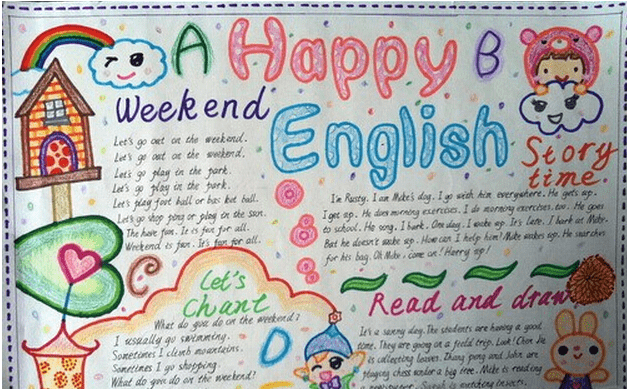 A Happy B
English
Weekend
Let's go out on the weekend.
Let's go out on the weekend.
Let's go play in the park.
Let's go play in the park.
Let's play foot ball or bas ket ball.
Let's go shop ping or play in the sun.
The have fun. It is fun for all.
Weekend is fun. It's fun for all.
Story
time.
I'm Rusty. I am Mike's dog. I go with him everywhere. He gets up.
I get up. He does morning exercises. I do morning exercises, too. He goes
to school. He song. I bark. One day, I wake up. It's late. I bark at Mike.
But he doesn't wake up. How can I help him? Mike wakes up. He searches
for his bag. Oh Mike, come on! Harry up!
C
Let's
Chant
What do you do on the weekend?
I usually go swimming.
Sometimes I climb mountains.
Sometimes I go shopping.
What do you do on the weekend?
D
Read and draw
It's a sunny day. The students are having a good
time. They are going on a field trip. Look! Chen Jie
is collecting leaves. Zhang peng and John are
playing chess under a big tree. Mike is reading